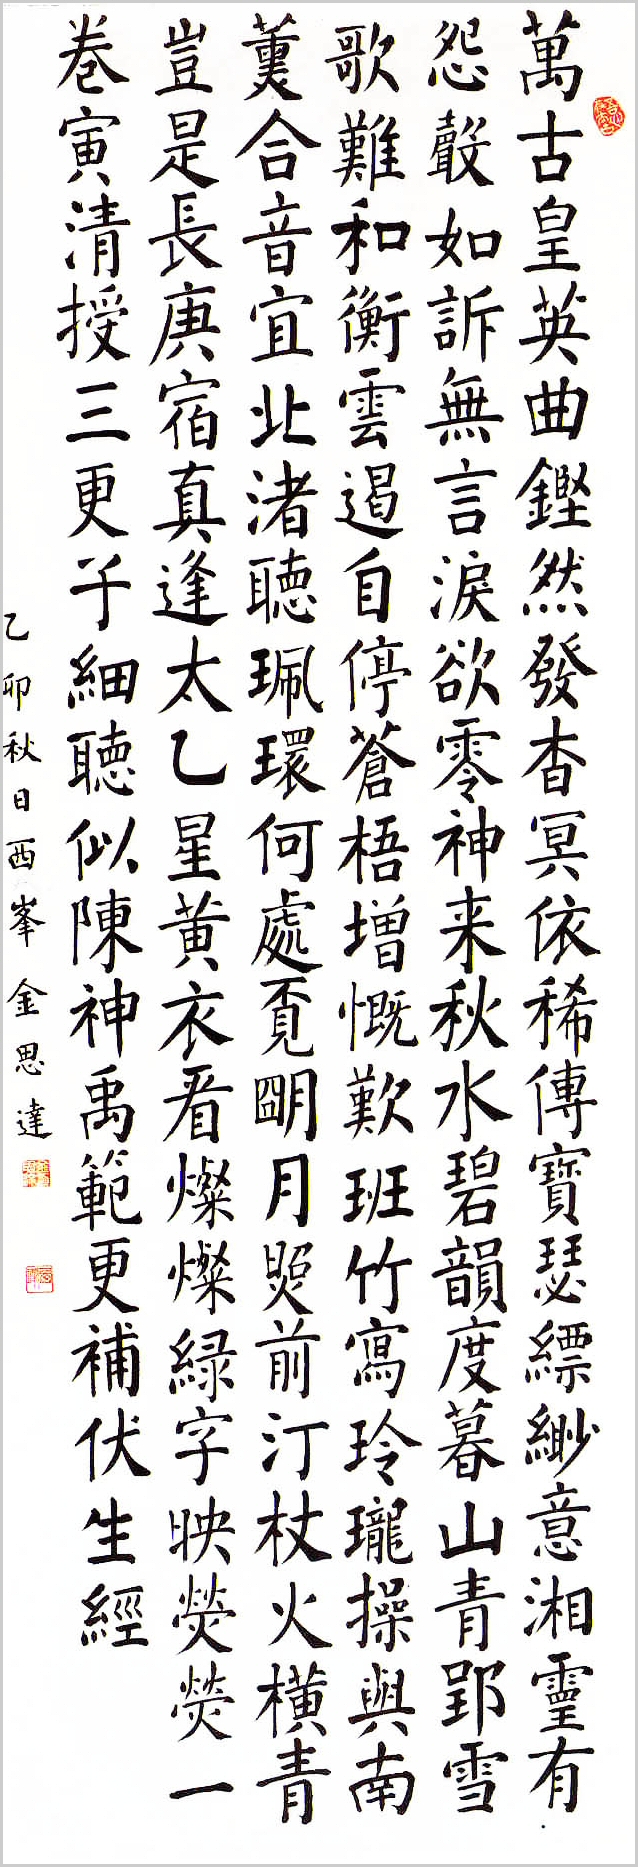 萬古皇英曲鏗然發杳冥依稀傳寶瑟縹緲意湘靈有
怨聲如訴無言淚欲零神来秋水碧韻度暮山青郢雪
歌難和衡雲遏自停蒼梧增慨歎班竹寫玲瓏操與南
薰合音宜北渚聽珮環何處覔朙月照前汀杖火橫青
豈是長庚宿真逢太乙星黃衣看燦燦緑字映熒熒一
卷寅清授三更子細聽似陳神禹範更補伏生經
乙卯秋日西峯金思達